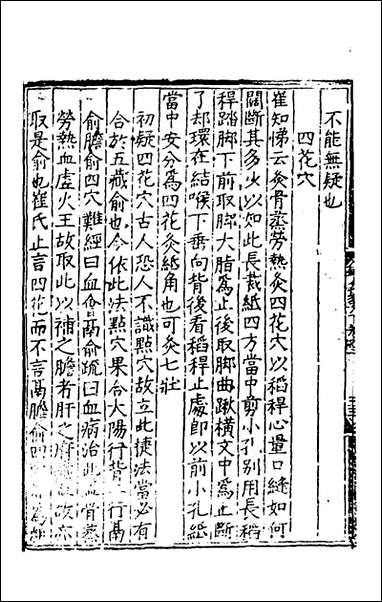 不能無疑也
四花穴
崔知悌云灸骨蒸勞熱灸四花穴以稻稈心量口縫如何
闊斷其多少以如此長裁紙四方當中剪小孔別用長稻
稈踏脚下前取脚大指為止後取脚曲䐐橫文中為止斷
了却環在結喉下垂向背後看稻稈止處即以前小孔紙
當中安分為四花灸紙角也可灸七壯
初疑四花穴古人恐人不識點穴故立此捷法當必有
合於五藏俞也今依此法點穴果合太陽行背二行鬲
俞膽俞四穴難經曰血會鬲俞疏曰血病治此蓋骨蒸
勞熱血虛火王故取此以補之膽者肝之府藏血故亦
取是俞也崔氏止言四花而不言鬲膽俞四穴者為